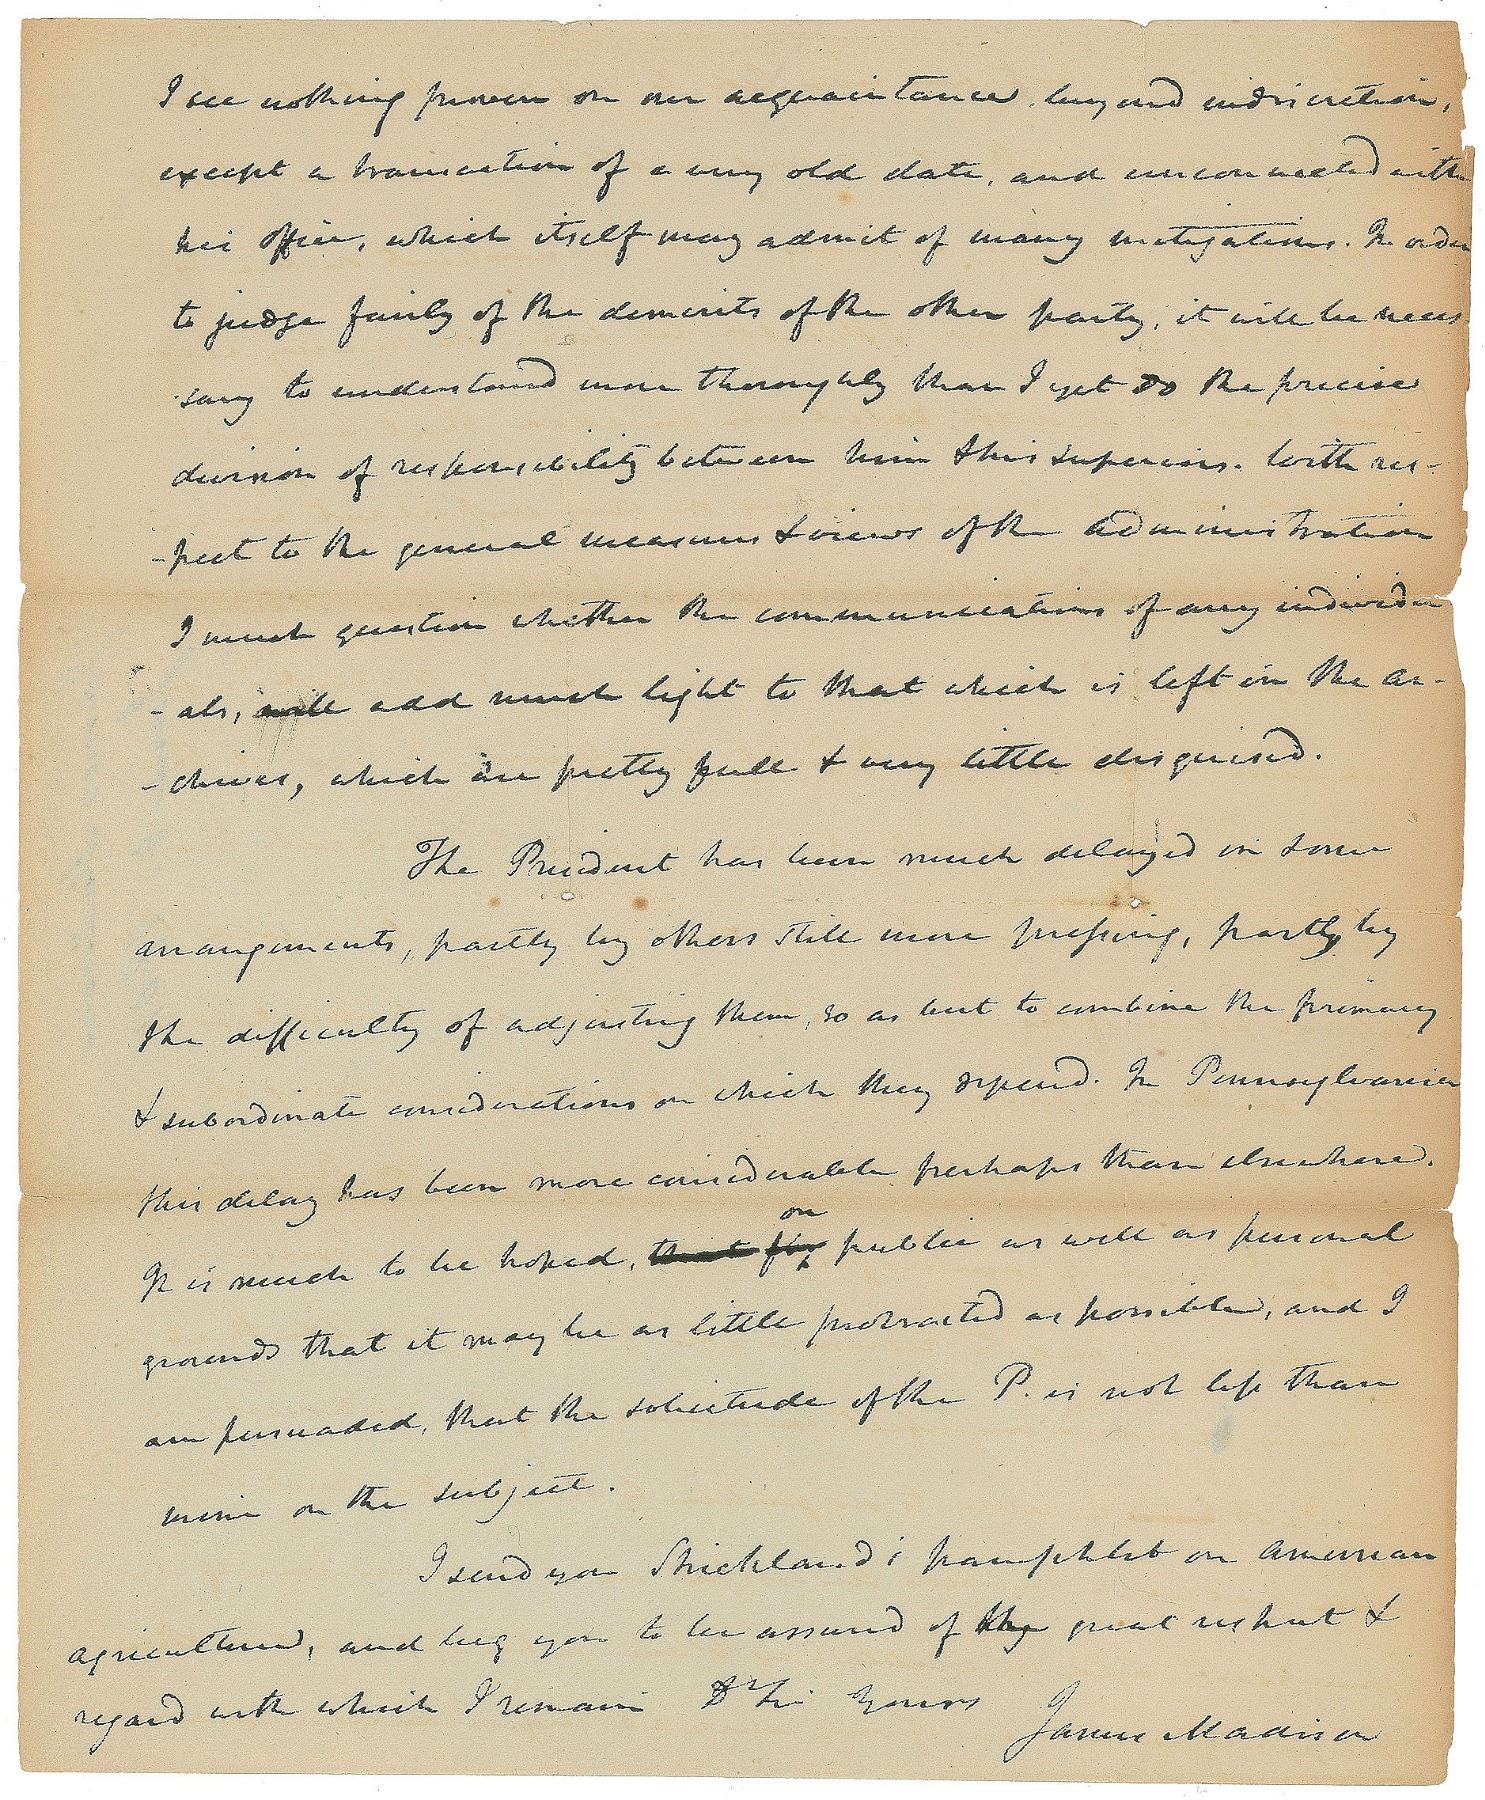 I see nothing proven on our acquaintance beyond indiscretion,
except a transaction of a very old date, and unconnected with
his office, which itself may admit of many mitigations. In order
to judge fairly of the demerits of the other party, it will be neces
sary to understand more thoroughly than I yet do the precise
division of responsibility between him & his superiors. With res-
-pect to the general measures & views of the administration
I much question whether the communications of any individu
-als, will add much light to that which is left in the ar-
-chives, which are pretty full & very little disguised.
The President has been much delayed in some
arrangements, partly by others still more pressing, partly by
the difficulty of adjusting them, so as best to combine the primary
& subordinate considerations on which they depend. In Pennsylvania
this delay has been more considerable perhaps than elsewhere.
on
It is much to be hoped, that public as well as personal
grounds that it may be as little protracted as possible, and I
am persuaded, that the solicitude of the P. is not less than
mine on the subject.
I send you Strickland's pamphlet on American
agriculture, and beg you to be assured of the great respect &
regard with which I remain Dr Sir Yours James Madison